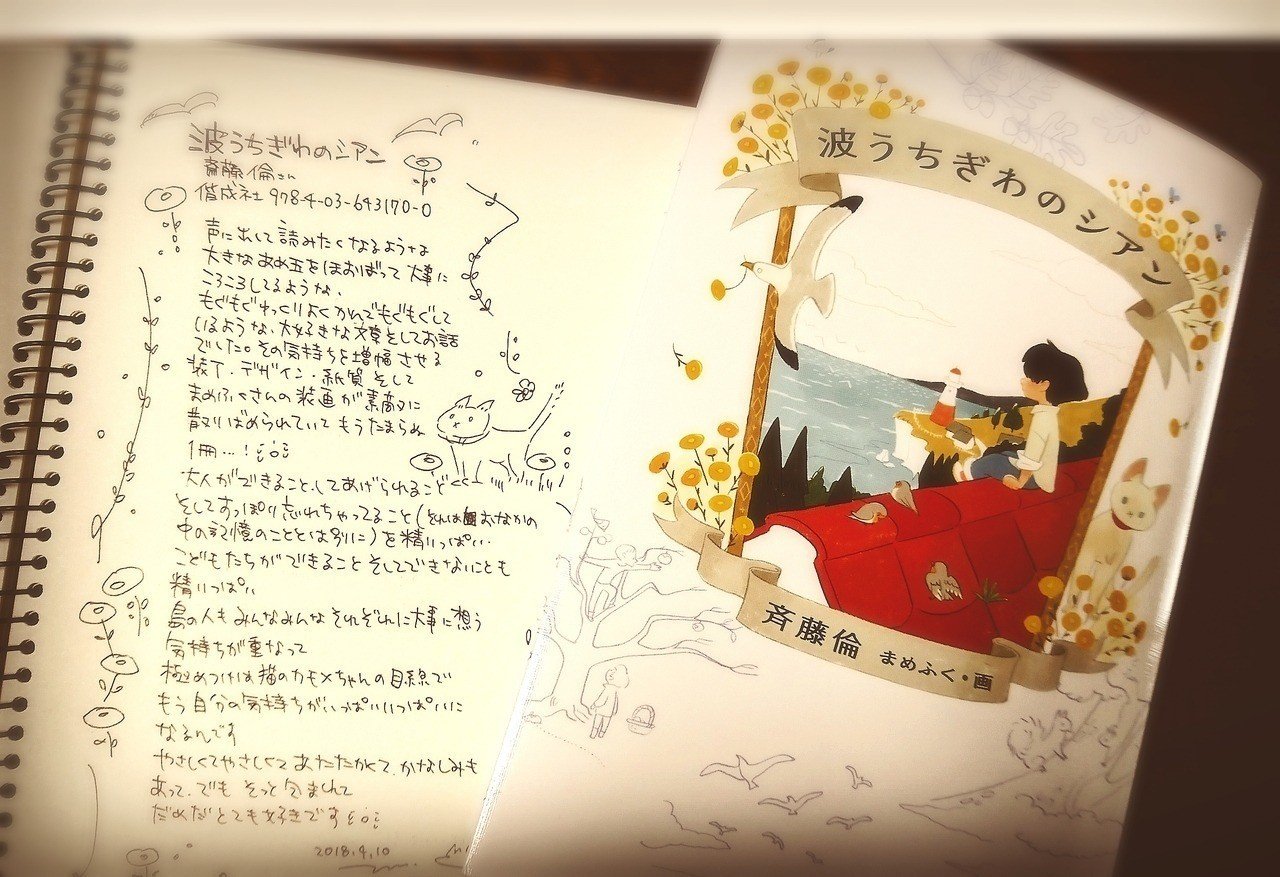 波うちぎわのシアン
斉藤倫さん
偕成社 978-4-03-643170-0
声に出して読みたくなるような
大きなあめ玉をほおばって大事に
ころころしてるような、
もぐもぐゆっくりよくかんでもぐもぐして
いるような、大好きな文章とお話
でした。その気持ちを増幅させる
装丁・デザイン・紙質 そして
まめふくさんの装画が素敵に
散りばめられていて もうたまらぬ
1冊…!
大人ができること、してあげられること
そしてすっぽり忘れちゃってること(それはおなかの
中の記憶のこととは別に)を精いっぱい
こどもたちができること そしてできないことも
精いっぱい
島の人も みんなみんな それぞれに大事に想う
気持ちが重なって
極めつけは猫のカモメちゃんの目線で
もう自分の気持ちがいっぱいいっぱいに
なるんです
やさしくてやさしくて あたたかくて、かなしみも
あって、でも そっと包まれて
だめだとても好きです
2018.4.10
波うちぎわのシアン
斉藤倫 まめふく・画